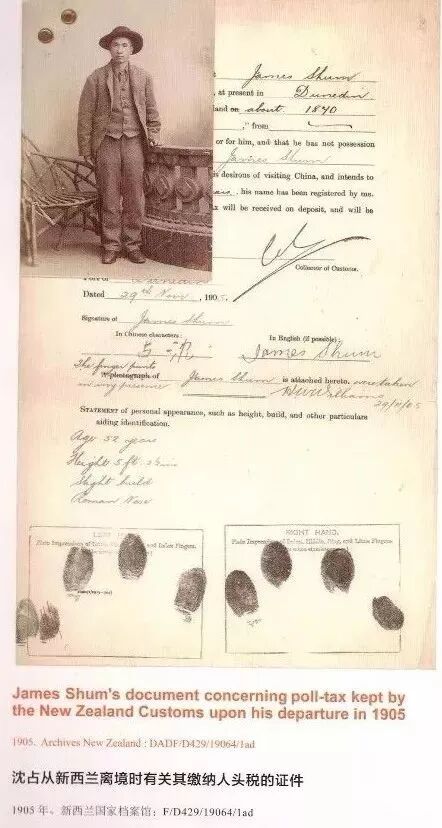 James Shum
, at present in Dunedin
and on about 1870
," from
or for him, and that he has not possession
James Shum
is desirous of visiting China, and intends to
, his name has been registered by me.
x will be received on deposit, and will be
Collector of Customs.
Port of Dunedin
Dated 29th Novr, 1905.
Signature of James Shum
In Chinese characters:
In English (if possible):
James Shum
The finger prints
photograph of James Shum is attached hereto, were taken
in my presence
29/11/05
STATEMENT of personal appearance, such as height, build, and other particulars
aiding identification.
Age 52 years
Height 5 ft
Slight build
Roman Nose
LEFT HAND.
RIGHT HAND.
Plain Impression of Index, Middle, Ring, and Little Fingers
James Shum's document concerning poll-tax kept by
the New Zealand Customs upon his departure in 1905
1905. Archives New Zealand : DADF/D429/19064/1ad
沈占从新西兰离境时有关其缴纳人头税的证件
1905 年。新西兰国家档案馆：F/D429/19064/1ad